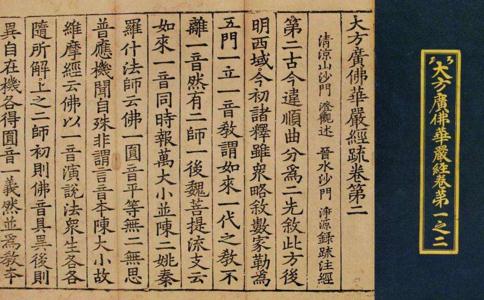 大方廣佛華嚴経卷苐一之二
大方廣佛華嚴經疏卷第二
清涼山沙門 澄觀述 晉水沙門 淨源錄疏注經
第二古今違順曲分為二先敘此方後
明西域今初諸釋雖衆略敘數家勒為
五門一立一音教謂如來一代之教不
離一音然有二師一後魏菩提流支云
如來一音同時報萬大小並陳二姚秦
羅什法師云佛一圓音平等無二無思
普應機聞自殊非謂言音本陳大小故
維摩經云佛以一音演說法衆生各各
隨所解上之二師初則佛音具異後則
異自在機各得圓音一義然並為教本